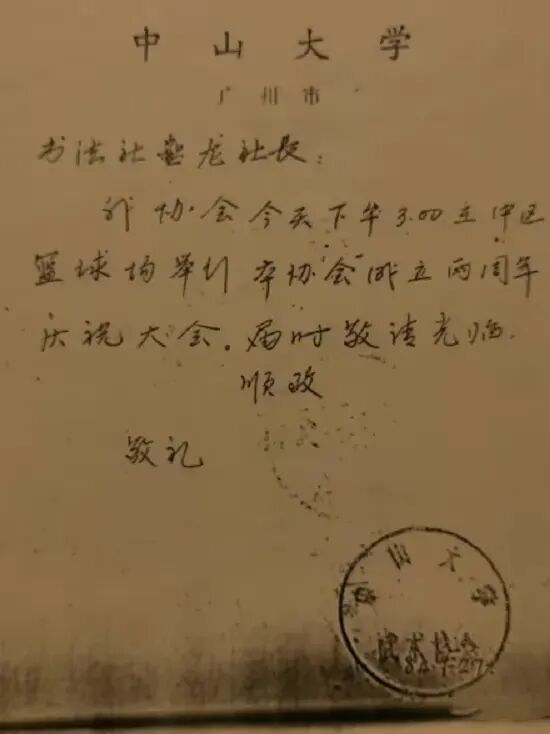 中山大学
广州市
书法社龙社长：
我协会今天下午3.00在中区
篮球场举行本协会成立两周年
庆祝大会。届时敬请光临.
顺致
敬礼
中山大学
武术协会